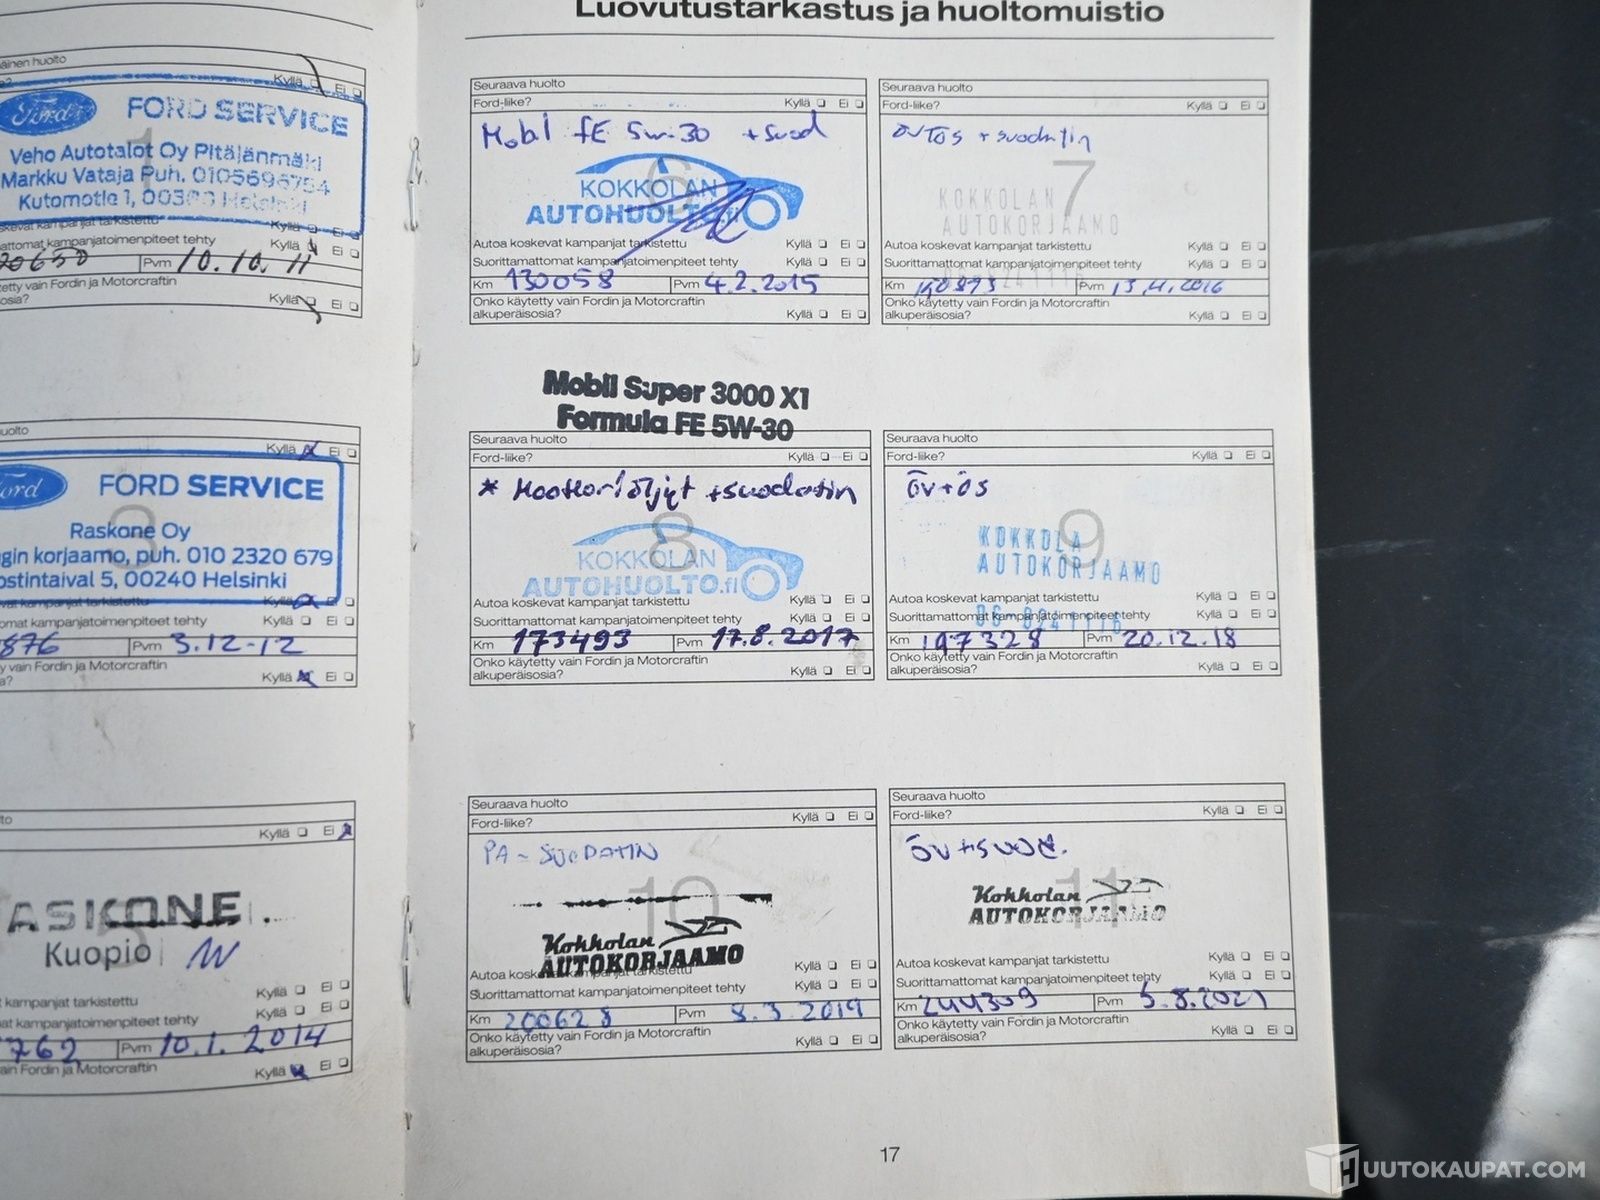 Luovutustarkastus ja huoltomuistio
äinen huolto
Kyllä Ei
Ford FORD SERVICE
1
Veho Autotalot Oy Pitäjänmäki
Markku Vataja Puh. 0105696754
Kutomotie 1, 00380 Helsinki
skevat kampanjat tarkistettu Kyllä Ei
mattomat kampanjatoimenpiteet tehty Kyllä Ei
Pvm 10.10.11
etty vain Fordin ja Motorcraftin
osia? Kyllä Ei
uolto
Kyllä Ei
Ford FORD SERVICE
3
Raskone Oy
gin korjaamo, puh. 010 2320 679
ostintaival 5, 00240 Helsinki
vat kampanjat tarkistettu Kyllä Ei
omat kampanjatoimenpiteet tehty Kyllä Ei
876 Pvm 3.12-12
y vain Fordin ja Motorcraftin
a? Kyllä Ei
to
Kyllä Ei
ASKONE.
5
Kuopio
t kampanjat tarkistettu Kyllä Ei
at kampanjatoimenpiteet tehty Kyllä Ei
762 Pvm 10.1.2014
ain Fordin ja Motorcraftin
Kyllä Ei
Seuraava huolto
Ford-liike? Kyllä Ei
Mobil FE 5w-30 +suod
6
KOKKOLAN
AUTOHUOLTO.fi
Autoa koskevat kampanjat tarkistettu Kyllä Ei
Suorittamattomat kampanjatoimenpiteet tehty Kyllä Ei
Km 130058 Pvm 4.2.2015
Onko käytetty vain Fordin ja Motorcraftin
alkuperäisosia? Kyllä Ei
Seuraava huolto
Ford-liike? Kyllä Ei
+ suodatin
7
KOKKOLAN
AUTOKORJAAMO
Autoa koskevat kampanjat tarkistettu Kyllä Ei
Suorittamattomat kampanjatoimenpiteet tehty Kyllä Ei
Km Pvm
Onko käytetty vain Fordin ja Motorcraftin
alkuperäisosia? Kyllä Ei
Mobil Super 3000 X1
Formula FE 5W-30
Seuraava huolto
Ford-liike? Kyllä Ei
* Moottoriöljyt +suodatin
8
KOKKOLAN
AUTOHUOLTO.fi
Autoa koskevat kampanjat tarkistettu Kyllä Ei
Suorittamattomat kampanjatoimenpiteet tehty Kyllä Ei
Km 173493 Pvm 17.8.2017
Onko käytetty vain Fordin ja Motorcraftin
alkuperäisosia? Kyllä Ei
Seuraava huolto
Ford-liike? Kyllä Ei
öv+ös
9
KOKKOLA
AUTOKORJAAMO
Autoa koskevat kampanjat tarkistettu Kyllä Ei
06-8241116
Suorittamattomat kampanjatoimenpiteet tehty Kyllä Ei
Km 197328 Pvm 20.12.18
Onko käytetty vain Fordin ja Motorcraftin
alkuperäisosia? Kyllä Ei
Seuraava huolto
Ford-liike? Kyllä Ei
PA-SUODATIN
10
Kokkolan
AUTOKORJAAMO
Autoa koskevat kampanjat tarkistettu Kyllä Ei
Suorittamattomat kampanjatoimenpiteet tehty Kyllä Ei
Km 200628 Pvm 8.3.2019
Onko käytetty vain Fordin ja Motorcraftin
alkuperäisosia? Kyllä Ei
Seuraava huolto
Ford-liike? Kyllä Ei
öv+suod.
11
Kokkolan
AUTOKORJAAMO
Autoa koskevat kampanjat tarkistettu Kyllä Ei
Suorittamattomat kampanjatoimenpiteet tehty Kyllä Ei
Km 244309 Pvm 5.8.2021
Onko käytetty vain Fordin ja Motorcraftin
alkuperäisosia? Kyllä Ei
17
HUUTOKAUPAT.COM